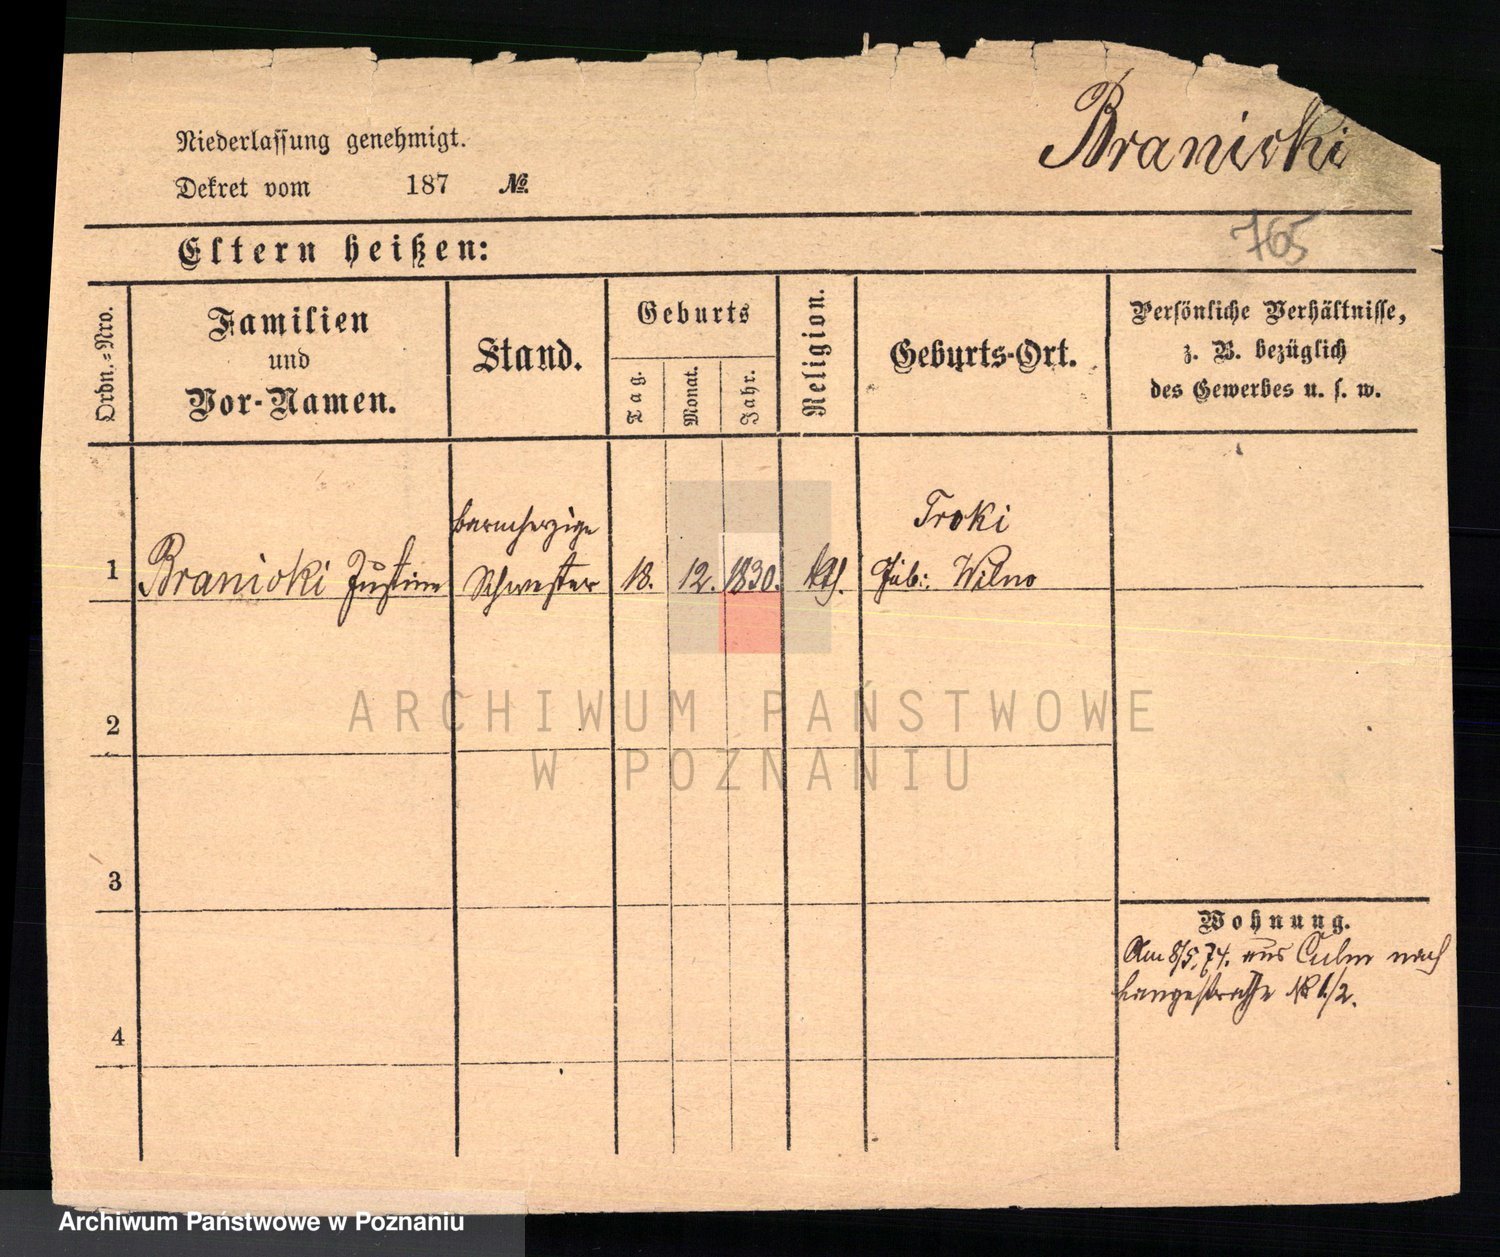 Branicki
Niederlassung genehmigt.
Dekret vom 187 No.
765
Eltern heißen:
Ordn.=Nro.
Familien
und
Vor-Namen.
Stand.
Geburts
Tag.
Monat.
Jahr.
Religion.
Geburts-Ort.
Persönliche Verhältnisse,
z. B. bezüglich
des Gewerbes u. s. w.
1
Branicki Justine
barmherzige
Schwester
18.
12.
1830.
kth.
Troki
Gub: Wilno
2
3
4
Wohnung.
Am 8/5. 74. aus Culm nach
Langestraße No 1/2.
ARCHIWUM PAŃSTWOWE
W POZNANIU
Archiwum Państwowe w Poznaniu